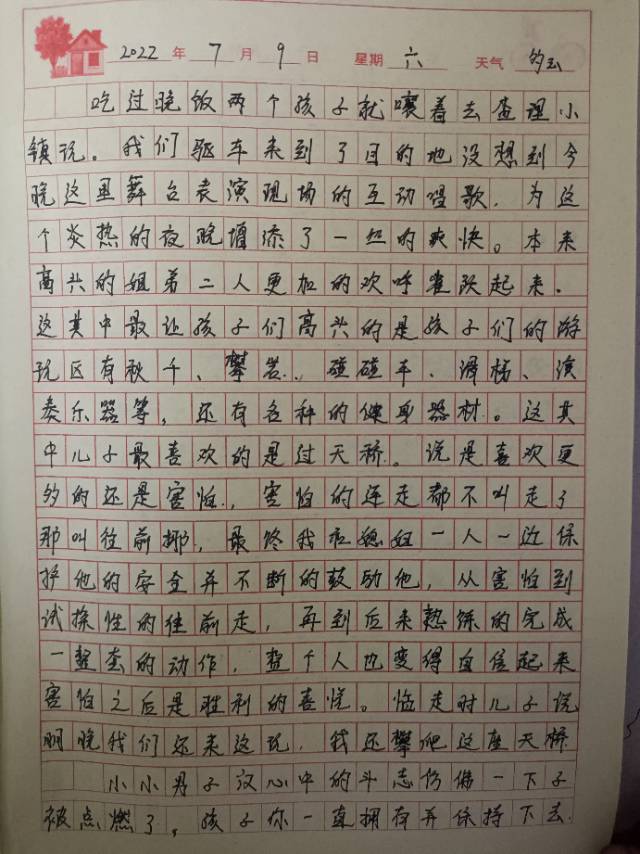 2022 年 7 月 9 日 星期 六 天气 多云
吃过晚饭两个孩子就嚷着去查理小
镇玩。我们驱车来到了目的地没想到今
晚这里舞台表演现场的互动唱歌，为这
个炎热的夜晚增添了一丝的爽快。本来
高兴的姐弟二人更加的欢呼雀跃起来.
这其中最让孩子们高兴的是孩子们的游
玩区有秋千、攀岩、碰碰车、滑梯、演
奏乐器等，还有各种的健身器材。这其
中儿子最喜欢的是过天桥。说是喜欢更
多的还是害怕，害怕的连走都不叫走了
那叫往前挪，最终我和媳妇一人一边保
护他的安全并不断的鼓励他，从害怕到
试探性的往前走，再到后来熟练的完成
一整套的动作，整个人也变得自信起来
害怕之后是胜利的喜悦。临走时儿子说
明晚我们还来这玩，我还攀爬这座天桥
小小男子汉心中的斗志仿佛一下子
被点燃了，孩子你一直拥有并保持下去.